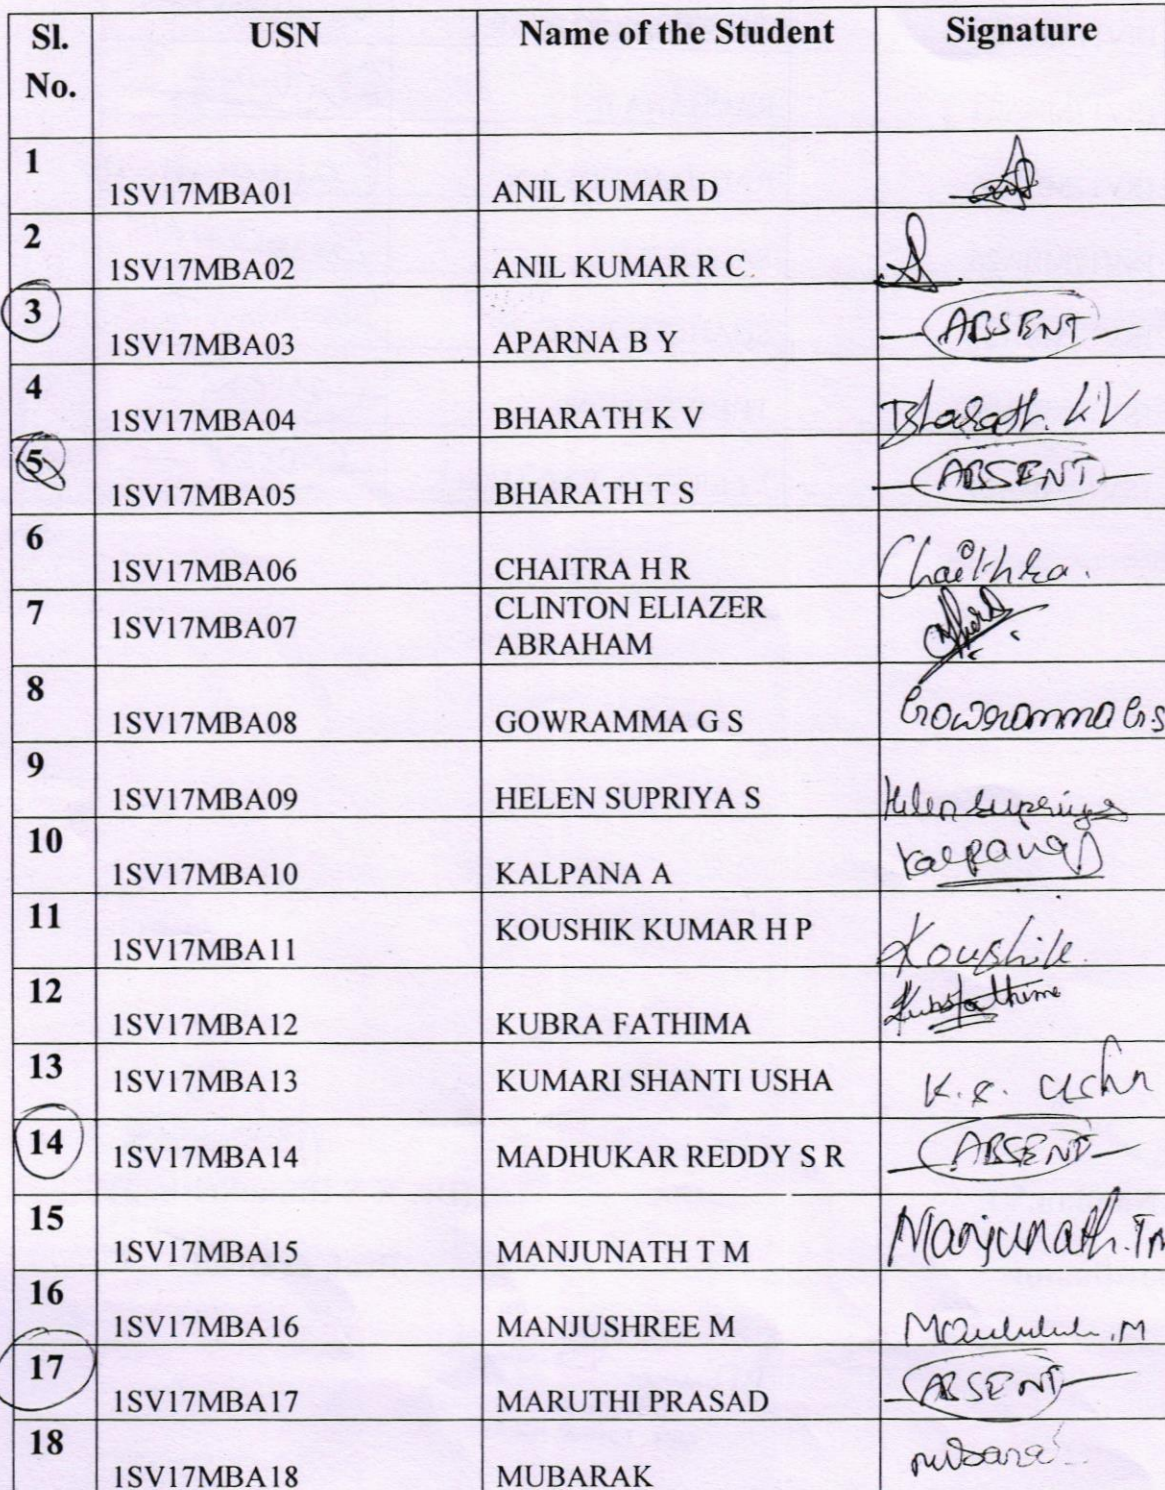 Sl. No. USN Name of the Student Signature
1 1SV17MBA01 ANIL KUMAR D
2 1SV17MBA02 ANIL KUMAR R C
3 1SV17MBA03 APARNA B Y ABSENT
4 1SV17MBA04 BHARATH K V Bharath. K V
5 1SV17MBA05 BHARATH T S ABSENT
6 1SV17MBA06 CHAITRA H R Chaithra.
7 1SV17MBA07 CLINTON ELIAZER
ABRAHAM
8 1SV17MBA08 GOWRAMMA G S Gowramma G.S
9 1SV17MBA09 HELEN SUPRIYA S Helen Supriya
10 1SV17MBA10 KALPANA A Kalpana
11 1SV17MBA11 KOUSHIK KUMAR H P Koushik.
12 1SV17MBA12 KUBRA FATHIMA
13 1SV17MBA13 KUMARI SHANTI USHA K.S. Usha
14 1SV17MBA14 MADHUKAR REDDY S R ABSENT
15 1SV17MBA15 MANJUNATH T M Manjunath.Tm
16 1SV17MBA16 MANJUSHREE M
17 1SV17MBA17 MARUTHI PRASAD ABSENT
18 1SV17MBA18 MUBARAK